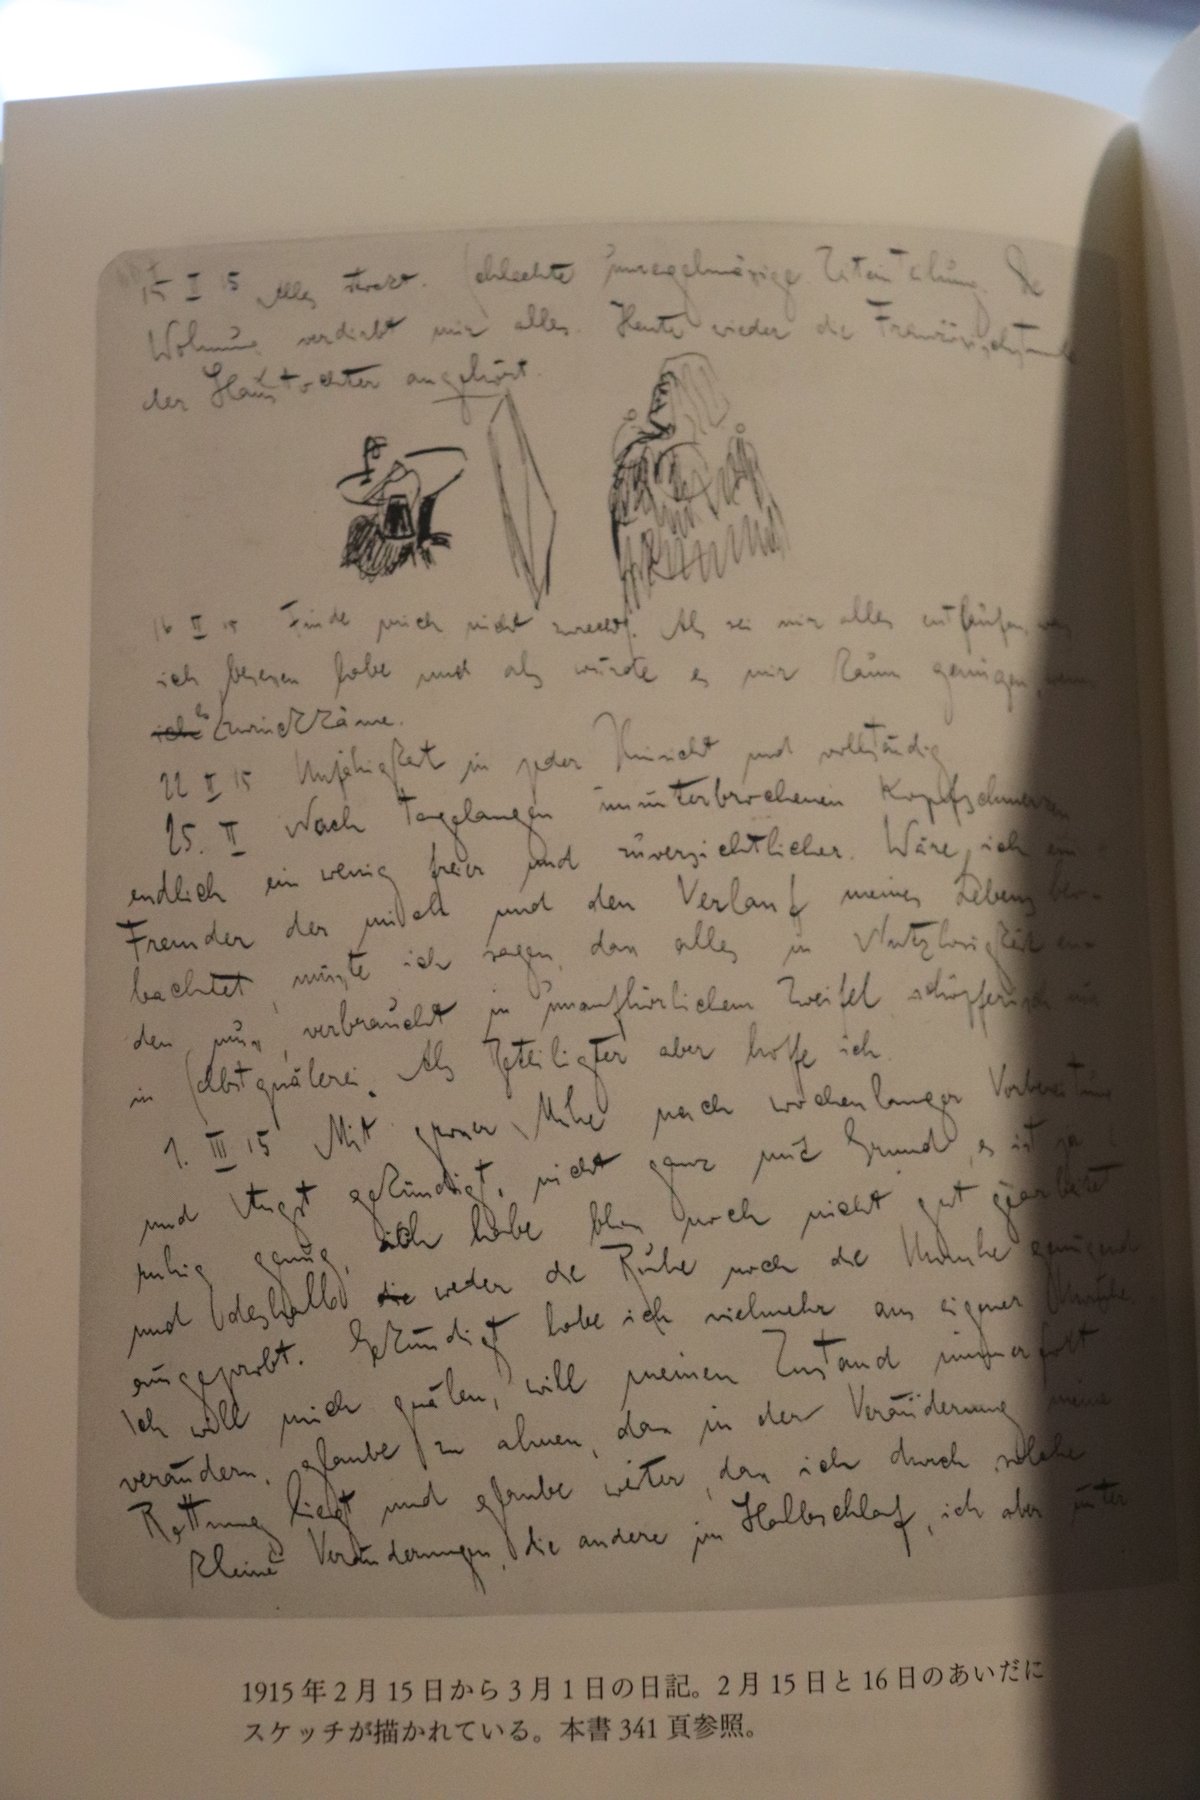 15 II 15 Alles stockt. Schlechte unregelmässige Zeiteinteilung. Die
Wohnung verdirbt mir alles. Heute wieder die Französischstunde
der Haustochter angehört.
16 II 15 Finde mich nicht zurecht. Als sei mir alles entlaufen, was
ich besessen habe und als würde es mir kaum genügen, wenn
ich es zurückkäme.
22 II 15 Unfähigkeit in jeder Hinsicht und vollständig
25. II Nach tagelangen ununterbrochenen Kopfschmerzen
endlich ein wenig freier und zuversichtlicher. Wäre ich ein
Fremder der mich und den Verlauf meines Lebens beo-
bachtet, müsste ich sagen, dass alles in Nutzlosigkeit en-
den muss, verbraucht in unaufhörlichem Zweifel, schöpferisch nur
in Selbstquälerei. Als Beteiligter aber hoffe ich.
1. III 15 Mit grosser Mühe nach wochenlanger Vorbereitung
und Angst gekündigt, nicht ganz mit Grund, es ist ja
ruhig genug, ich habe bloss noch nicht gut gearbeitet
und deshalb die weder die Ruhe noch die Unruhe genügend
ausgeprobt. Gekündigt habe ich vielmehr aus eigener Unruhe.
Ich will mich quälen, will meinen Zustand immerfort
verändern, glaube zu ahnen, dass in der Veränderung meine
Rettung liegt und glaube weiter, dass ich durch solche
kleine Veränderungen, die andere im Halbschlaf, ich aber unter
1915年2月15日から3月1日の日記。2月15日と16日のあいだに
スケッチが描かれている。本書341頁参照。